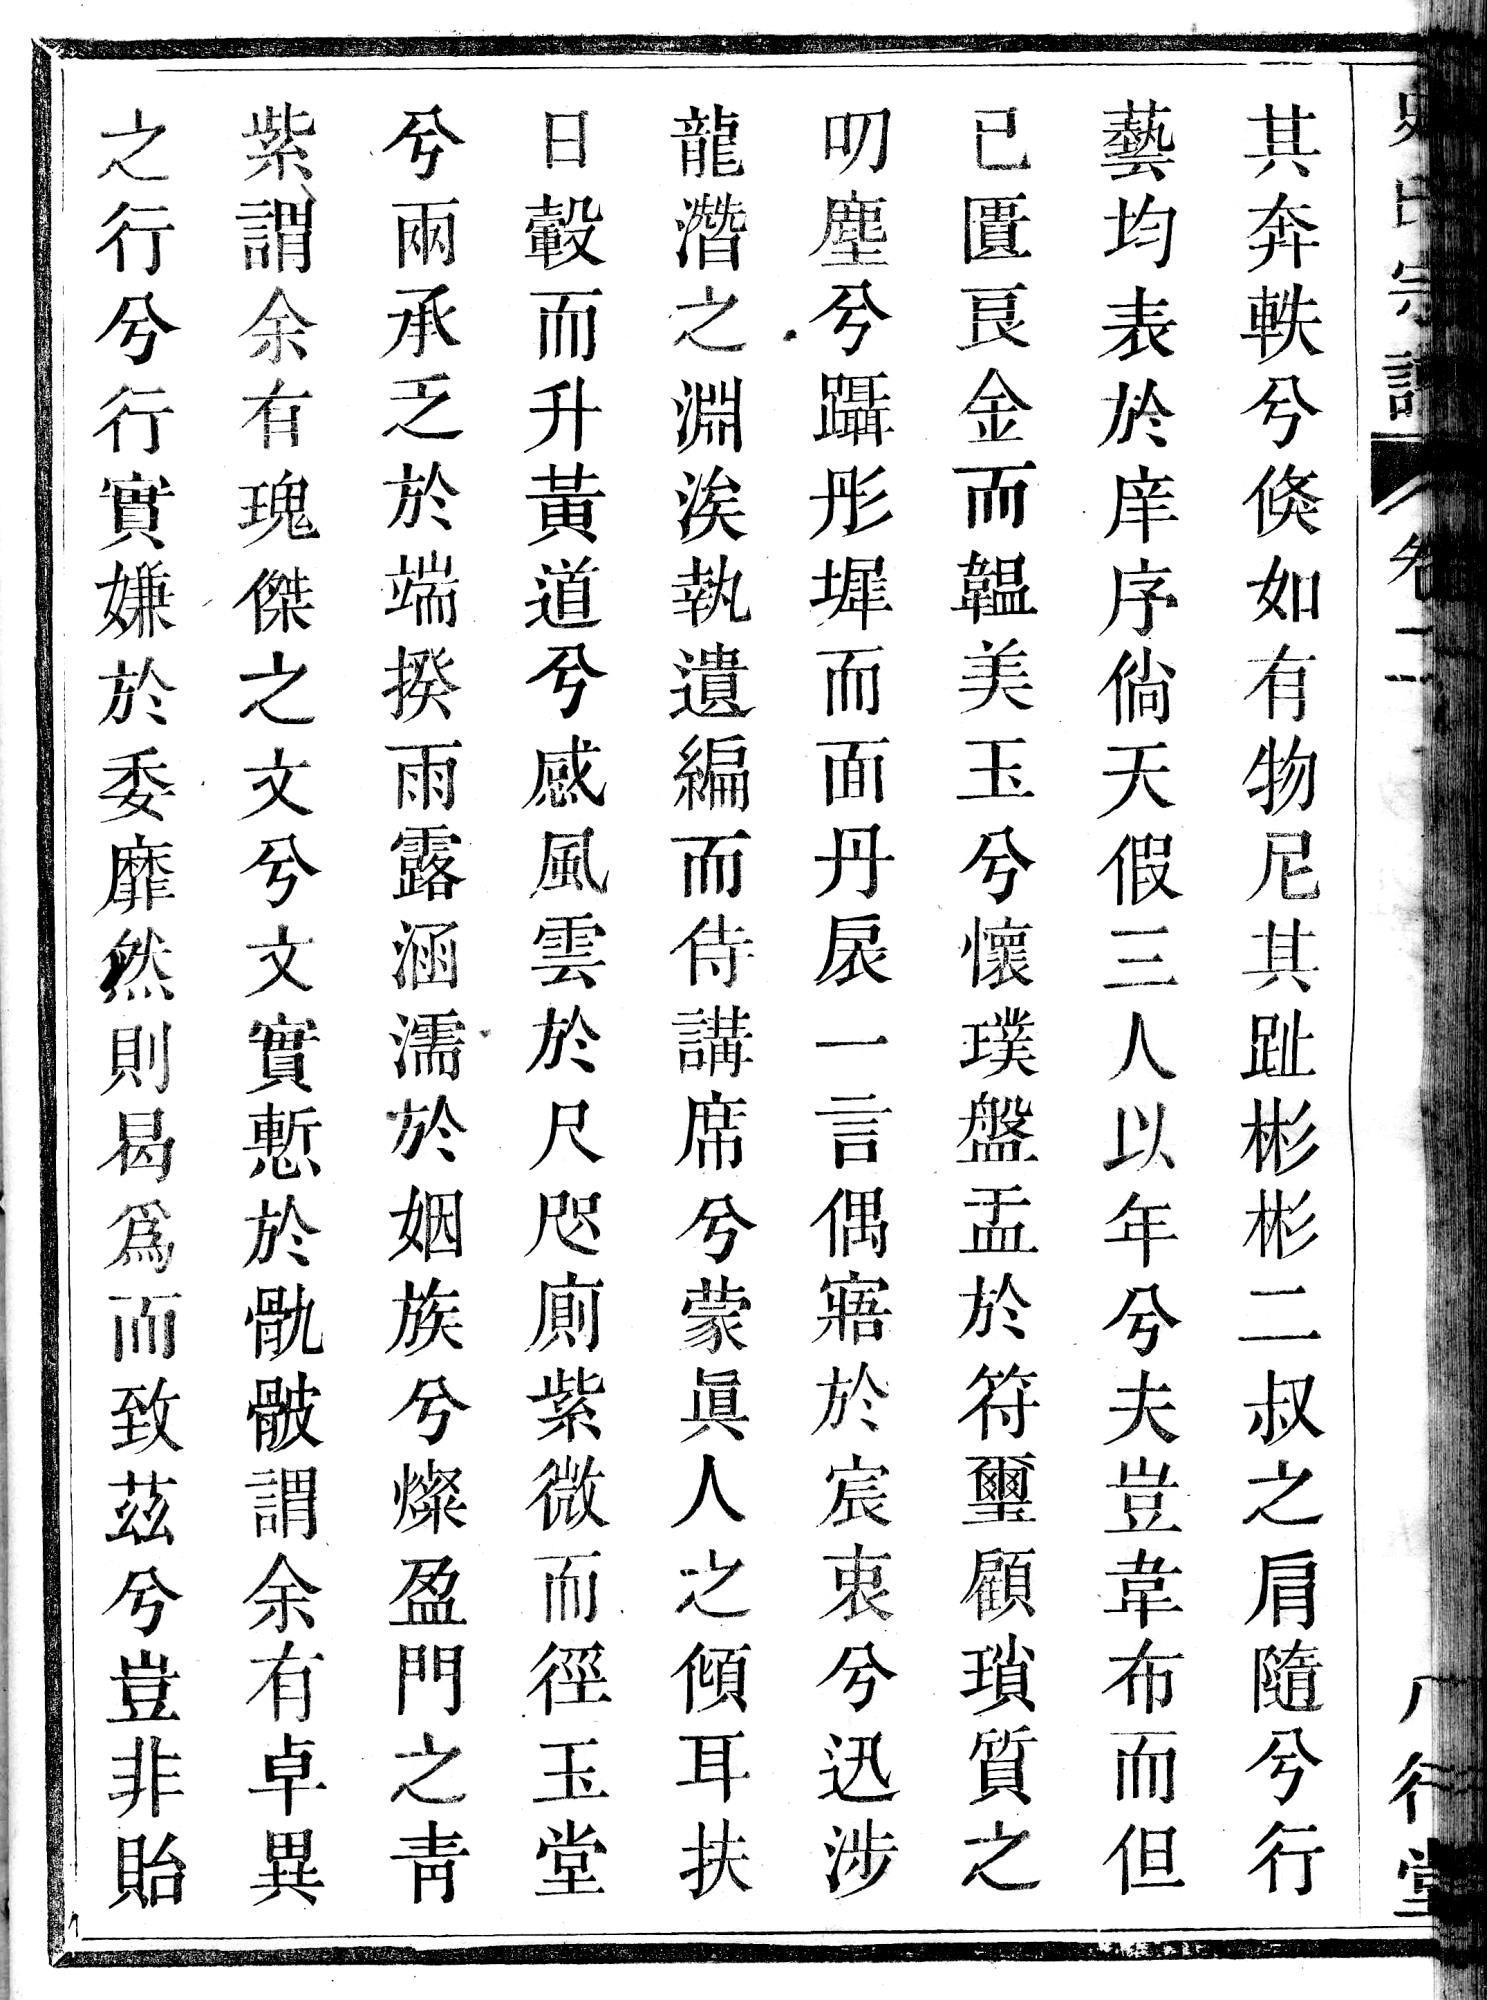 史氏宗譜 卷二 八行堂
其奔軼兮倐如有物尼其趾彬彬二叔之肩隨兮行
藝均表於庠序倘天假三人以年兮夫豈韋布而但
已匵良金而韞美玉兮懷璞盤盂於符璽顧瑣質之
叨塵兮躡彤墀而面丹扆一言偶寤於宸衷兮迅涉
龍潛之淵涘執遺編而侍講席兮蒙眞人之傾耳扶
日轂而升黃道兮感風雲於尺咫廁紫微而徑玉堂
兮兩承乏於端揆雨露涵濡於姻族兮燦盈門之靑
紫謂余有瑰傑之文兮文實慙於骫骳謂余有卓異
之行兮行實嫌於委靡然則曷爲而致茲兮豈非貽